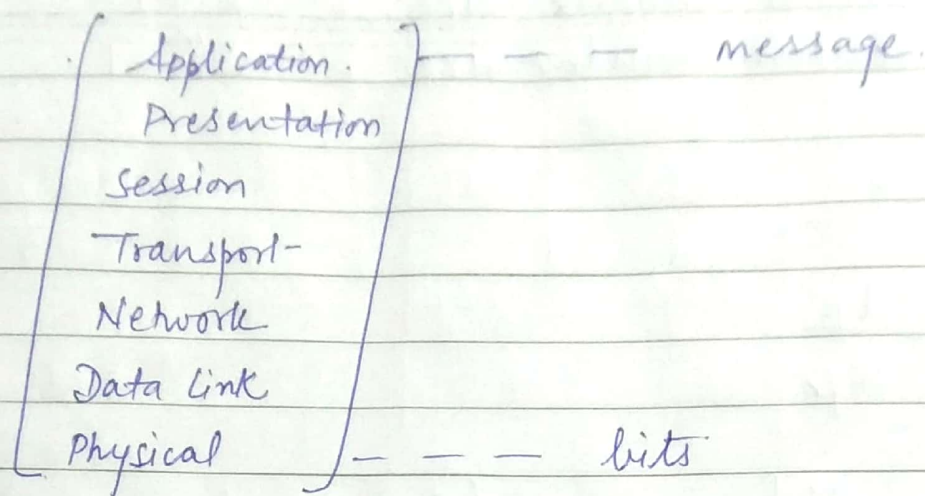 Application. - - - message.
Presentation
Session
Transport-
Network
Data Link
Physical - - - bits